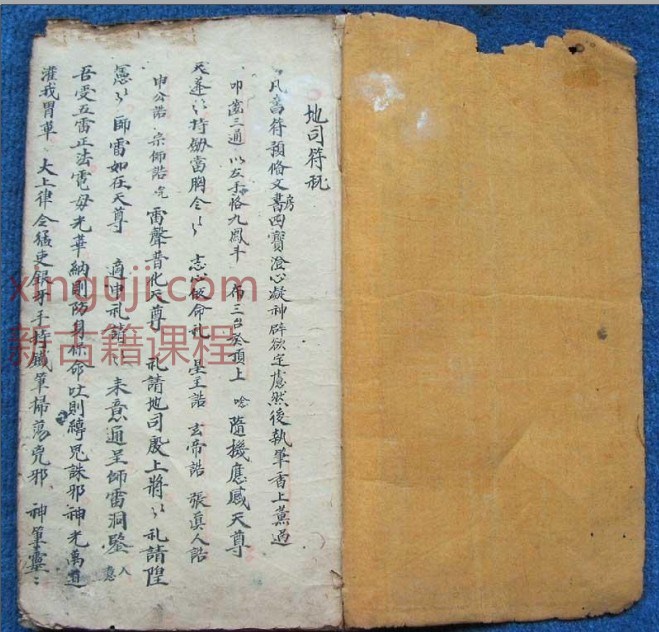 地司符秘
凡書符預備文房四寶澄心凝神辟欲定慮然後執筆香上薰过
叩齒三通 以左手掐九鳳斗 布三台於頂上 唸 隨機應感天尊
天蓬 持劾當胸念 志心皈命礼 星主誥 玄帝誥 張真人誥
申公誥 宗师誥 完 雷聲普化天尊 礼請地司殷上將 礼請隍
憲 师雷如在天尊 適申礼請 来意通呈师雷洞鑒 入意
吾受五雷正法電母光華納則防身保命吐則縛鬼誅邪神光萬道
灌我胃華 大上律令猛吏銀牙手持鐵筆掃蕩兇邪 神筆靈
xinguji.com
新古籍课程